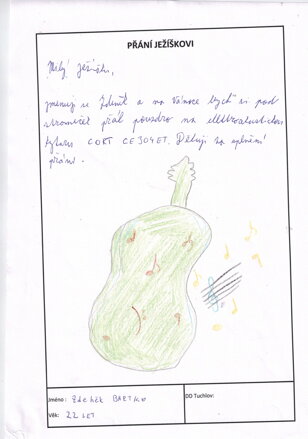 PŘÁNÍ JEŽÍŠKOVI
Milý Ježíšku,
jmenuji se Zdeněk a na Vánoce bych si pod
stromeček přál pouzdro na elektroakustickou
kytaru CORT CE304ET. Děkuji za splnění
přání.
Jméno: Zdeněk
Věk: 22 LET
DD Tuchlov: